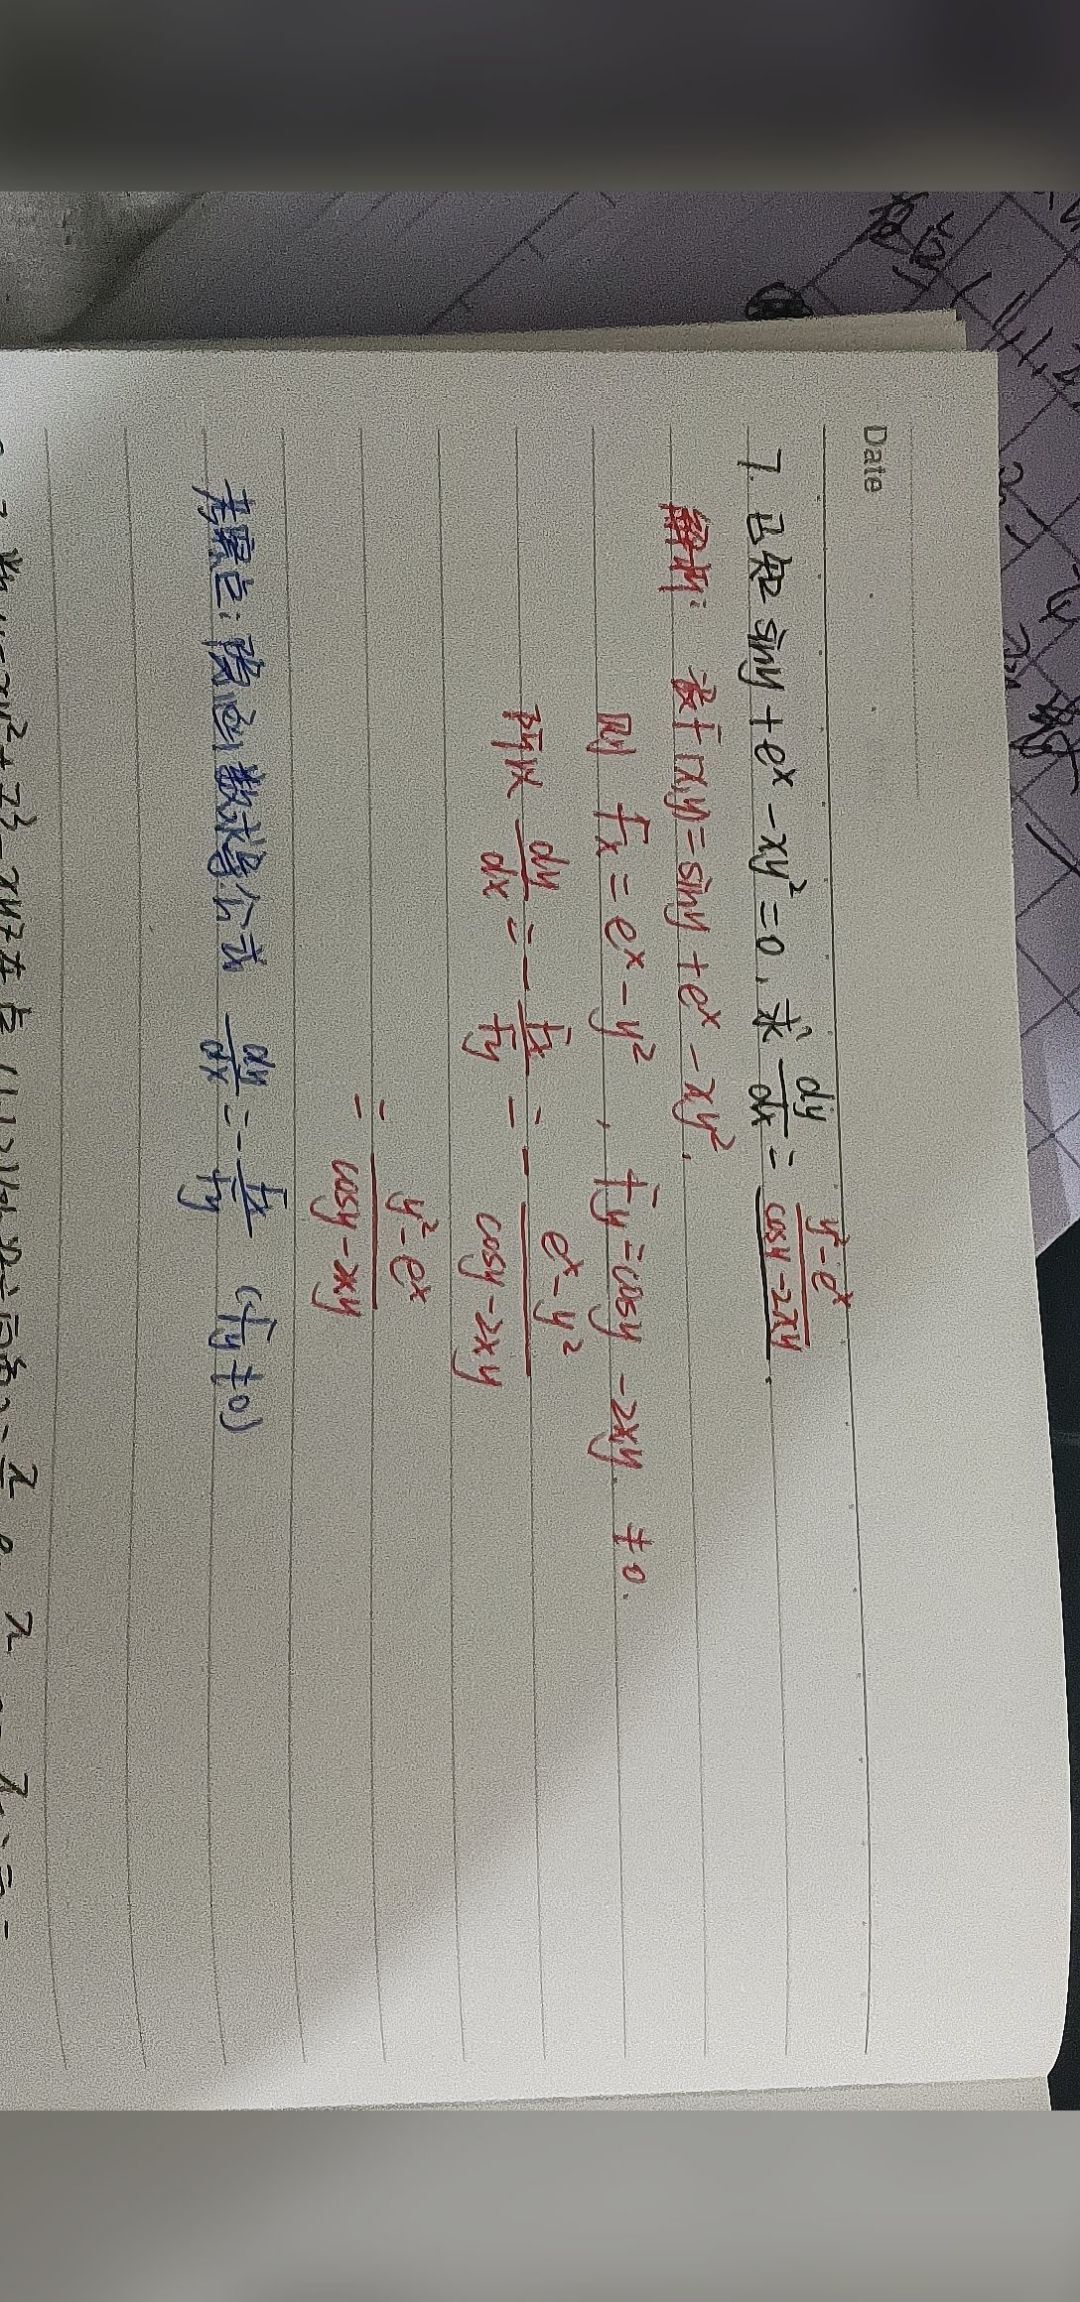 Date
7. 已知 siny + eˣ - xy² = 0, 求 dy/dx = (y² - eˣ)/(cosy - 2xy).
解析: 设F(x,y) = siny + eˣ - xy².
则 Fx = eˣ - y², Fy = cosy - 2xy. ≠ 0.
所以 dy/dx = - Fx/Fy = - (eˣ - y²)/(cosy - 2xy)
= (y² - eˣ)/(cosy - 2xy)
考察点: 隐函数求导公式 dy/dx = - Fx/Fy (Fy ≠ 0)